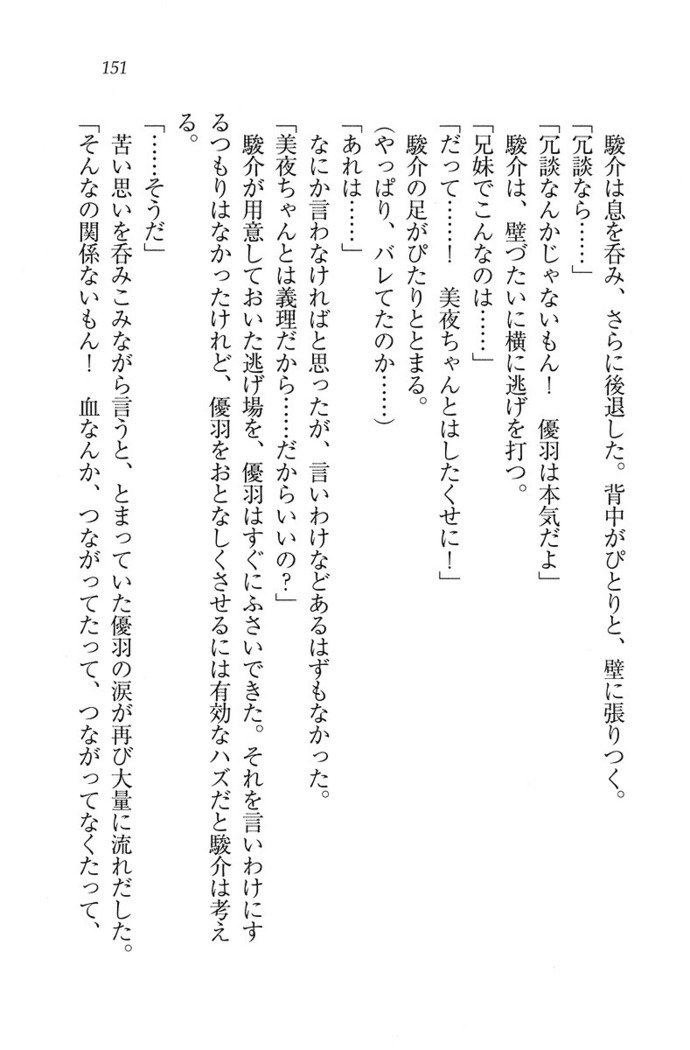 151
駿介は息を呑み、さらに後退した。背中がぴとりと、壁に張りつく。
「冗談なら……」
「冗談なんかじゃないもん！　優羽は本気だよ」
駿介は、壁づたいに横に逃げを打つ。
「兄妹でこんなのは……」
「だって……！　美夜ちゃんとはしたくせに！」
駿介の足がぴたりととまる。
（やっぱり、バレてたのか……）
「あれは……」
なにか言わなければと思ったが、言いわけなどあるはずもなかった。
「美夜ちゃんとは義理だから……だからいいの？」
駿介が用意しておいた逃げ場を、優羽はすぐにふさいできた。それを言いわけにす
るつもりはなかったけれど、優羽をおとなしくさせるには有効なハズだと駿介は考え
る。
「……そうだ」
苦い思いを呑みこみながら言うと、とまっていた優羽の涙が再び大量に流れだした。
「そんなの関係ないもん！　血なんか、つながってたって、つながってなくたって、